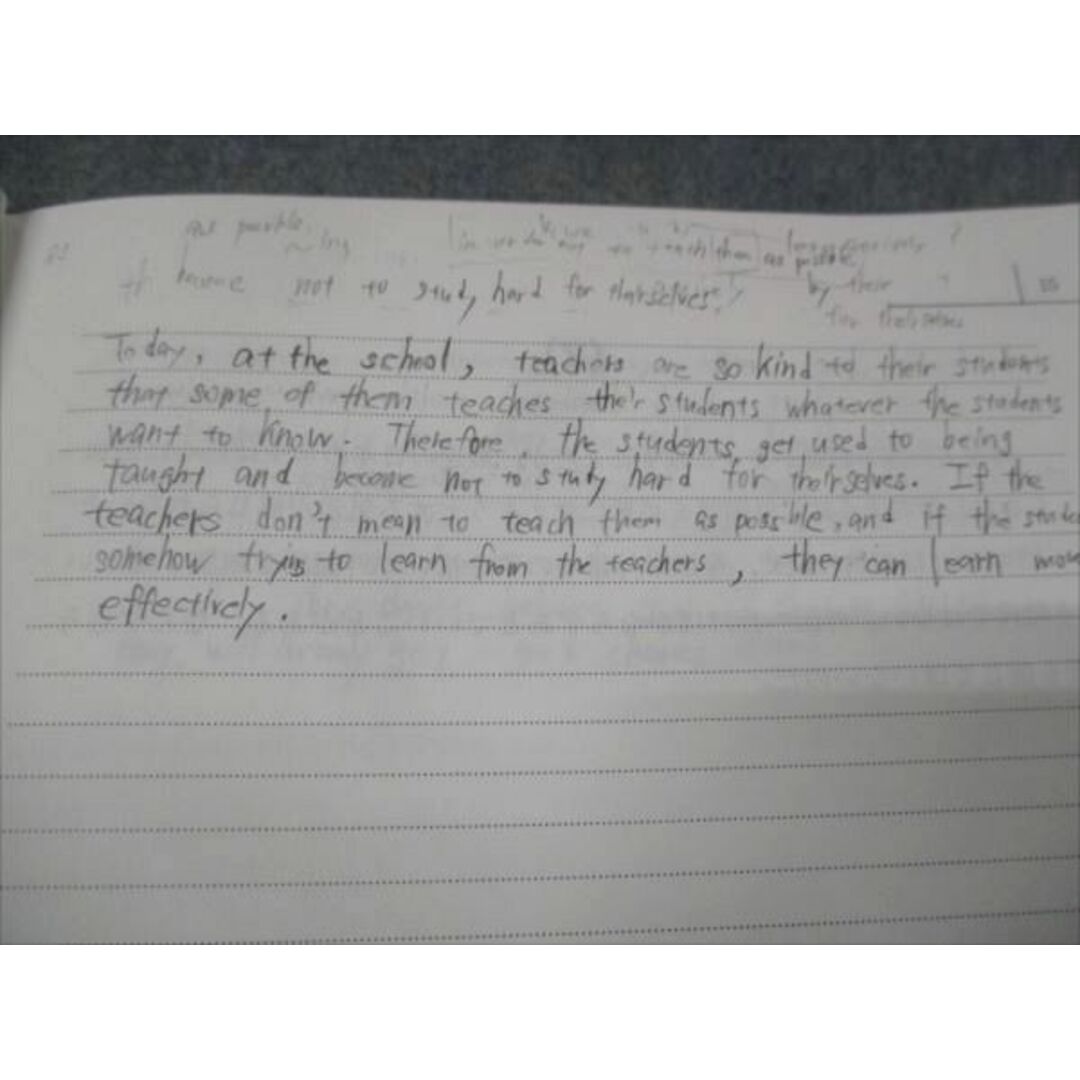 as
~ing
them as possible
become not to study hard for theirselves
by their
for theirselves
Today, at the school, teachers are so kind to their students
that some of them teaches their students whatever the students
want to know. Therefore, the students get used to being
taught and become not to study hard for theirselves. If the
teachers don't mean to teach them as possible, and if the
somehow trying to learn from the teachers, they can learn
effectively.